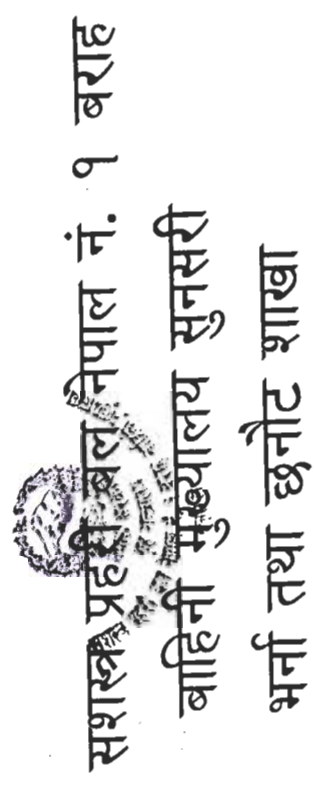 सशस्त्र प्रहरी बल नेपाल नं. १ बराह
बाहिनी मुख्यालय सुनसरी
भर्ना तथा छनौट शाखा